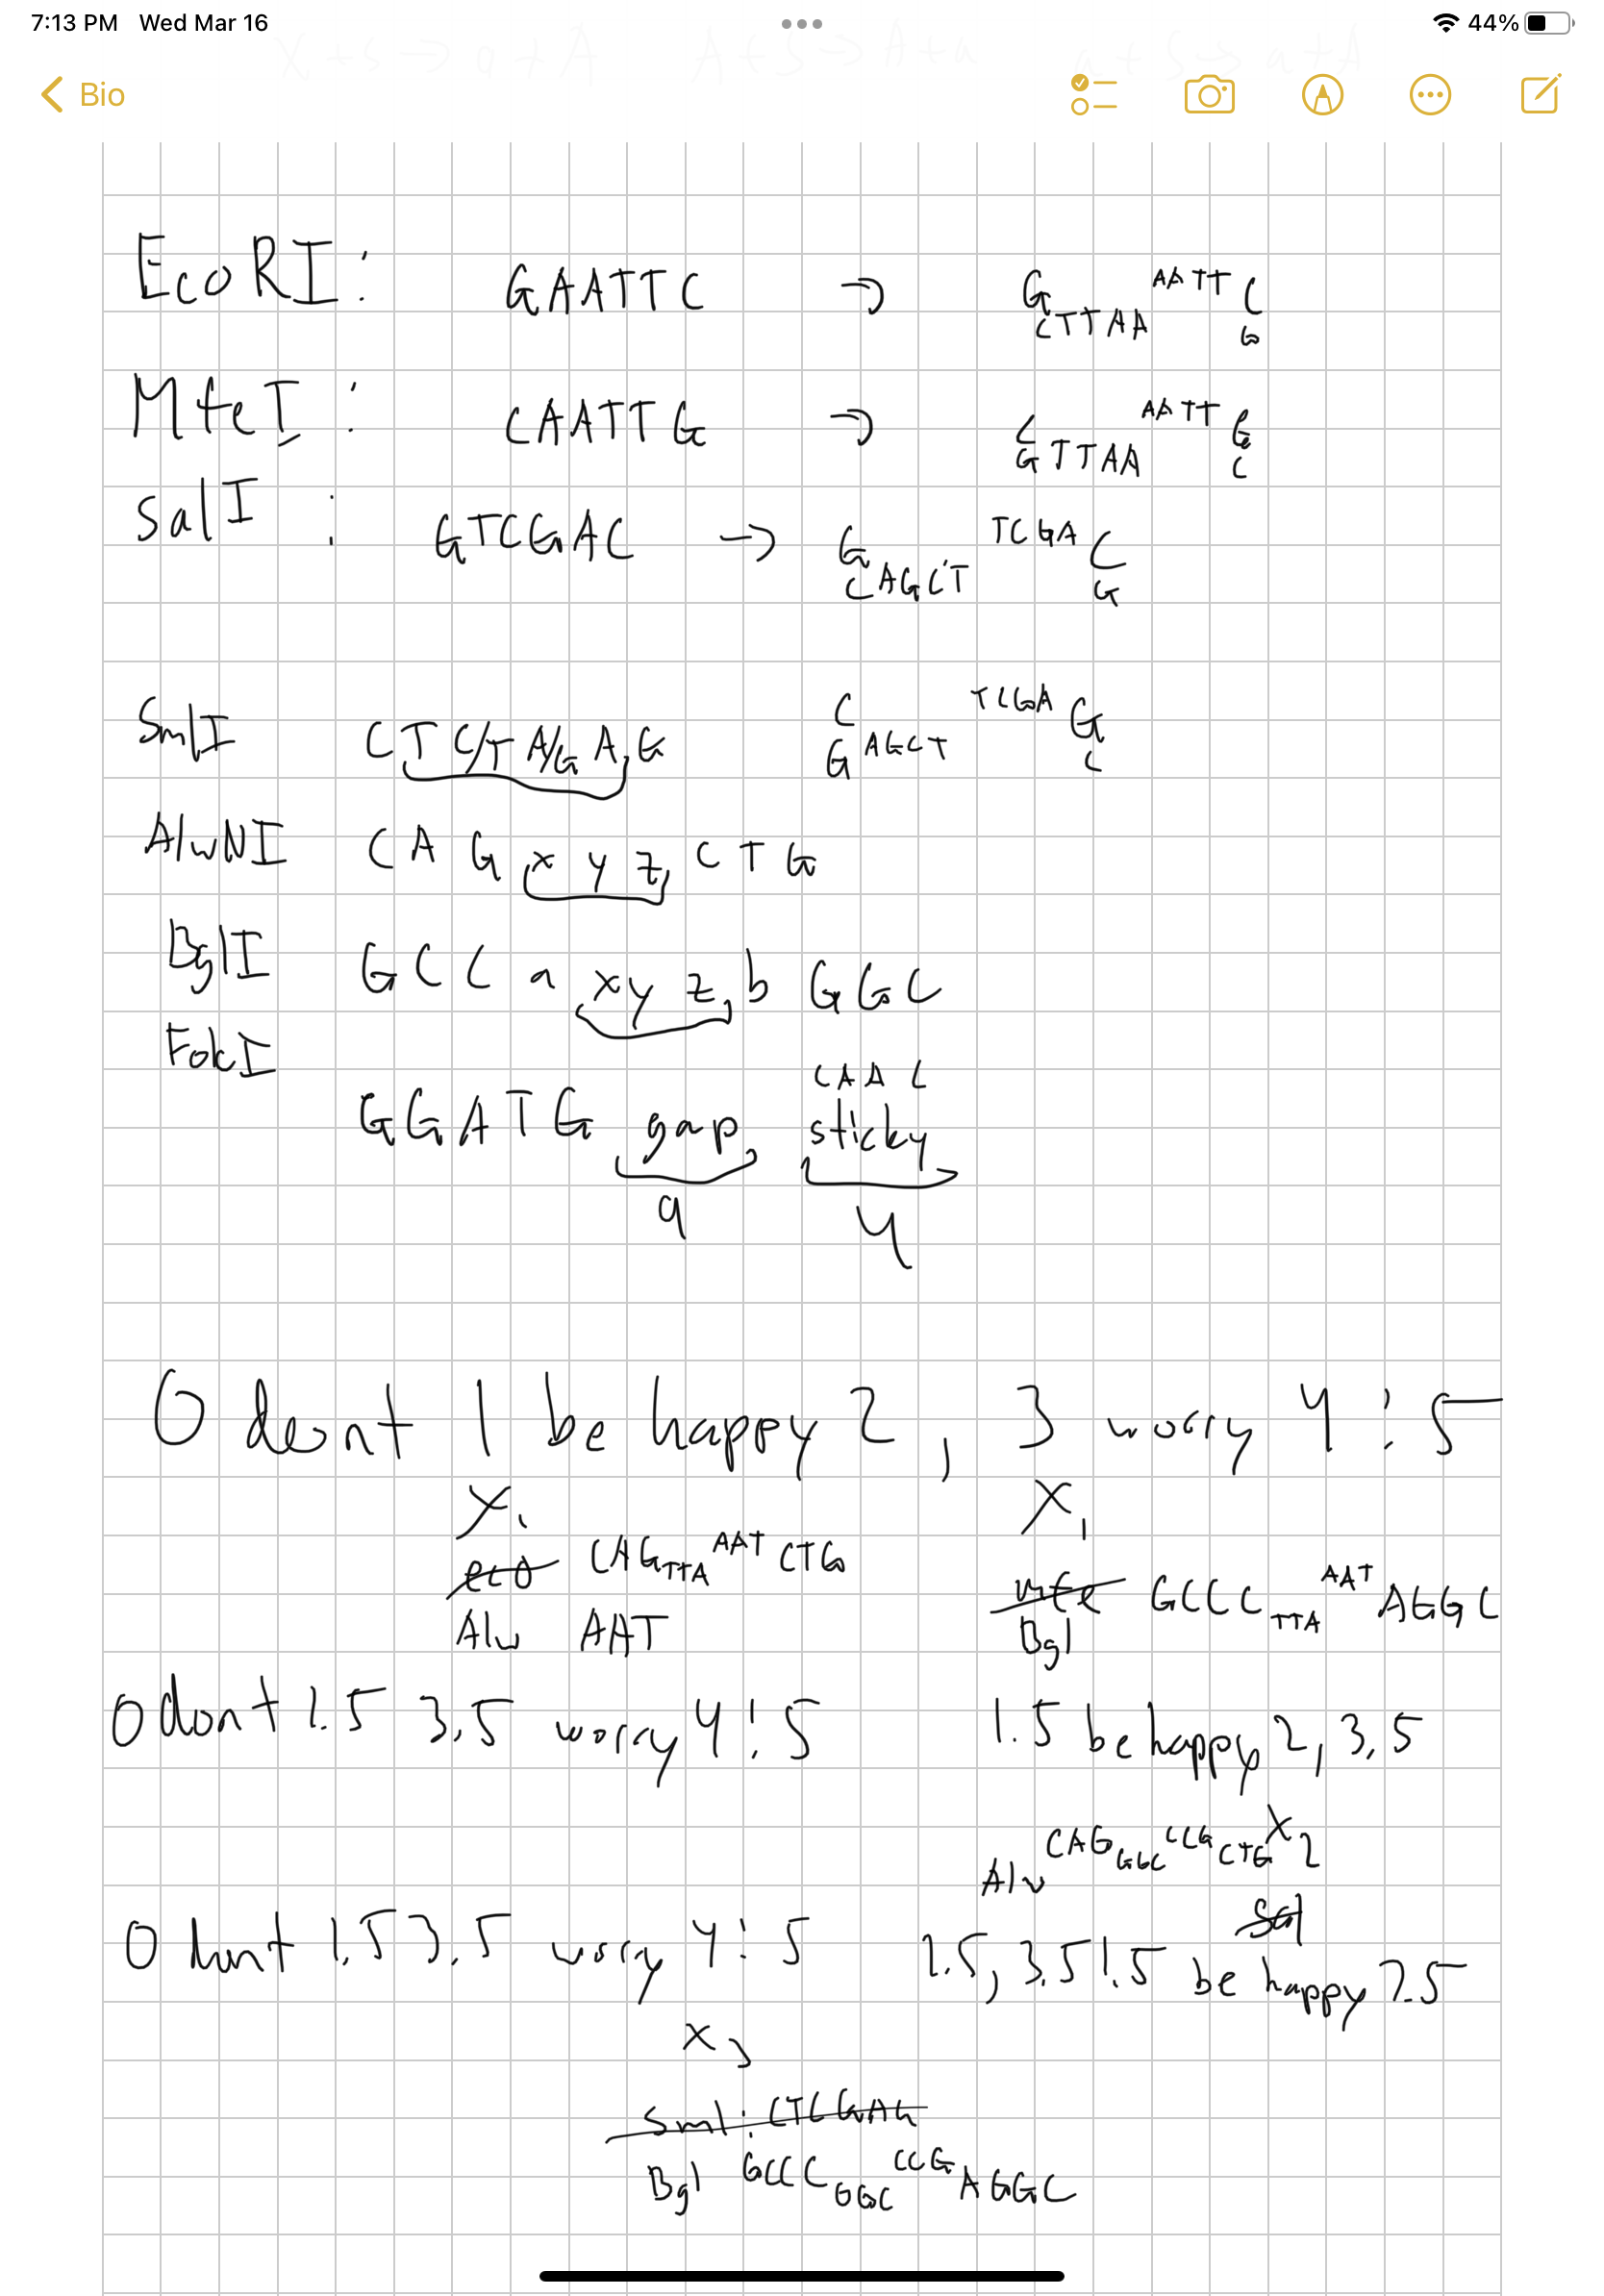 7:13 PM Wed Mar 16 44%
Bio
EcoRI: GAATTC → G CTTAA AATT C G
MfeI: CAATTG → C GTTAA AATT G C
SalI: GTCGAC → G CAGCT TCGA C G
SmlI CT C/T A/G A, G C G AGCT TCGA G C
AlwNI CAG x y z, CTG
BglI GCC a x y z, b GGC
FokI
CAAC
GGATG gap, sticky
9 4
0 dont 1 be happy 2, 3 worry 4 ! 5
X1 X1
eco CAG TTA AAT CTG mfe GCCC TTA AAT AGGC
Alw AAT Bgl
0 dont 1.5 3.5 worry 4 ! 5 1.5 be happy 2, 3.5
Alw CAG GGC CCG CTG X2
Sal
0 dont 1.5 3.5 worry 4 ! 5 2.5, 3.5 1.5 be happy 2.5
X3
Sml: CTCGAG
Bgl GCCC GGC CCG AGGC